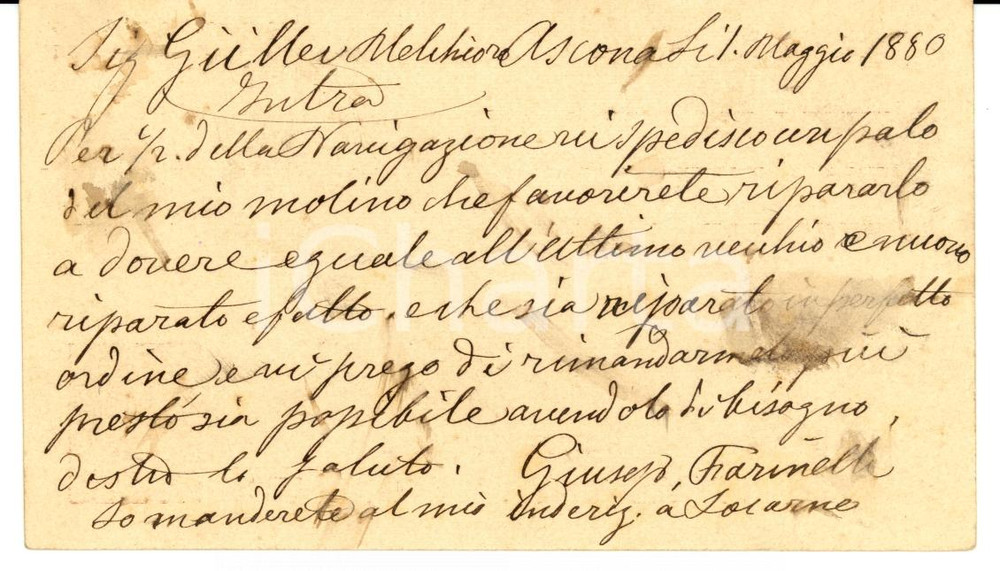 Sig Güller Melchiore Ascona Li 1. Maggio 1880
Intra
Per %. della Navigazione vi spedisco un palo
del mio molino che favorirete ripararlo
a dovere eguale all'ultimo vecchio e nuovo
riparato e fatto. e che sia riparato in perfetto
ordine e vi prego di rimandarmelo più
presto sia possibile avendolo di bisogno,
distto lo saluto. Giusep, Farinelli
Lo manderete al mio inderiz. a Locarno
iCharta